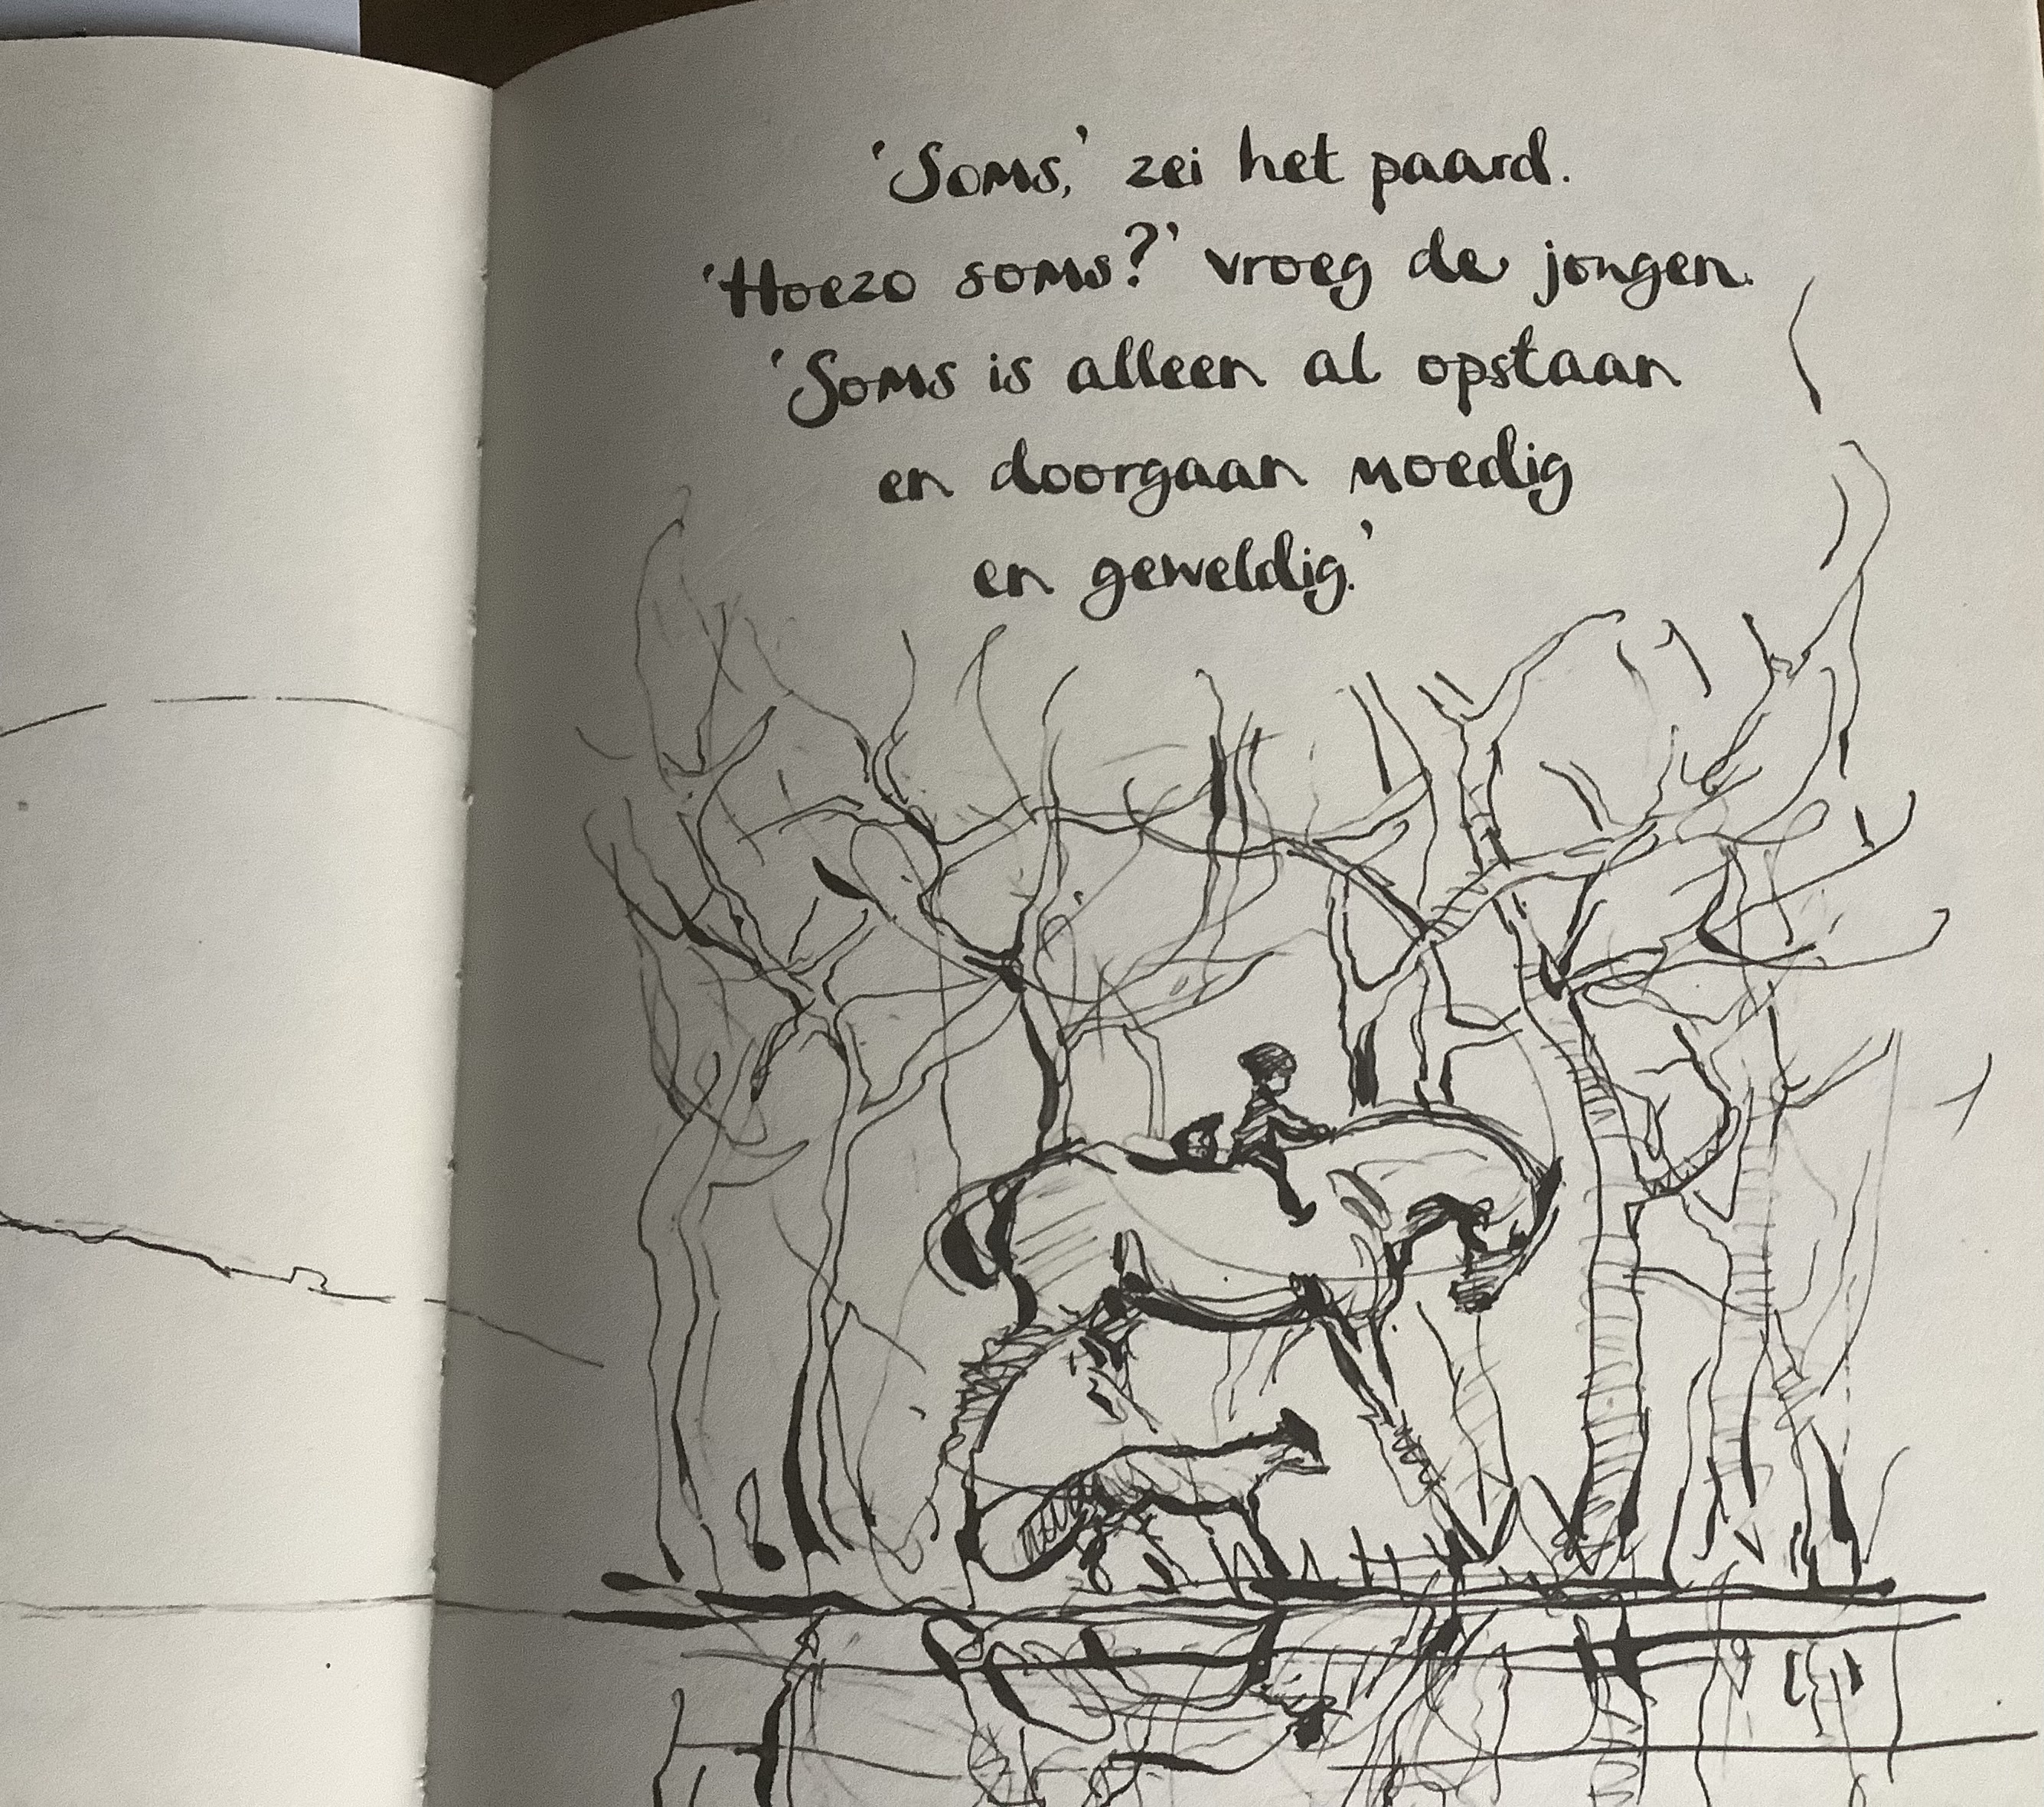 'Soms,' zei het paard.
'Hoezo soms?' vroeg de jongen.
'Soms is alleen al opstaan
en doorgaan moedig
en geweldig.'